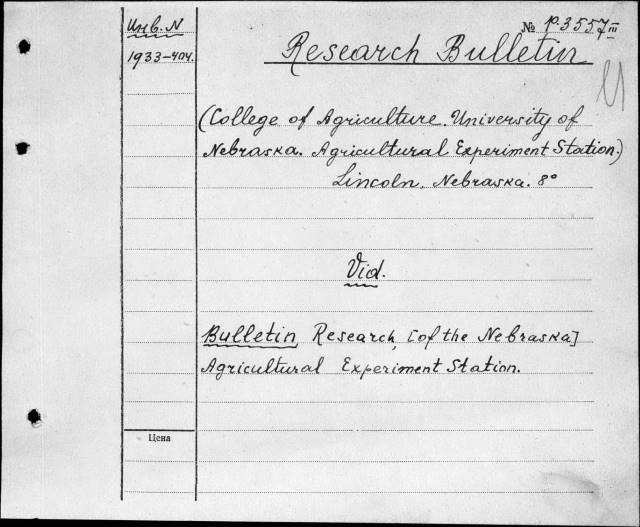 Инв. N
№ p.3557 III
1933-404.
Research Bulletin
(College of Agriculture. University of
Nebraska. Agricultural Experiment Station.)
Lincoln, Nebraska. 8°
Vid.
Bulletin, Research, [of the Nebraska]
Agricultural Experiment Station.
Цена